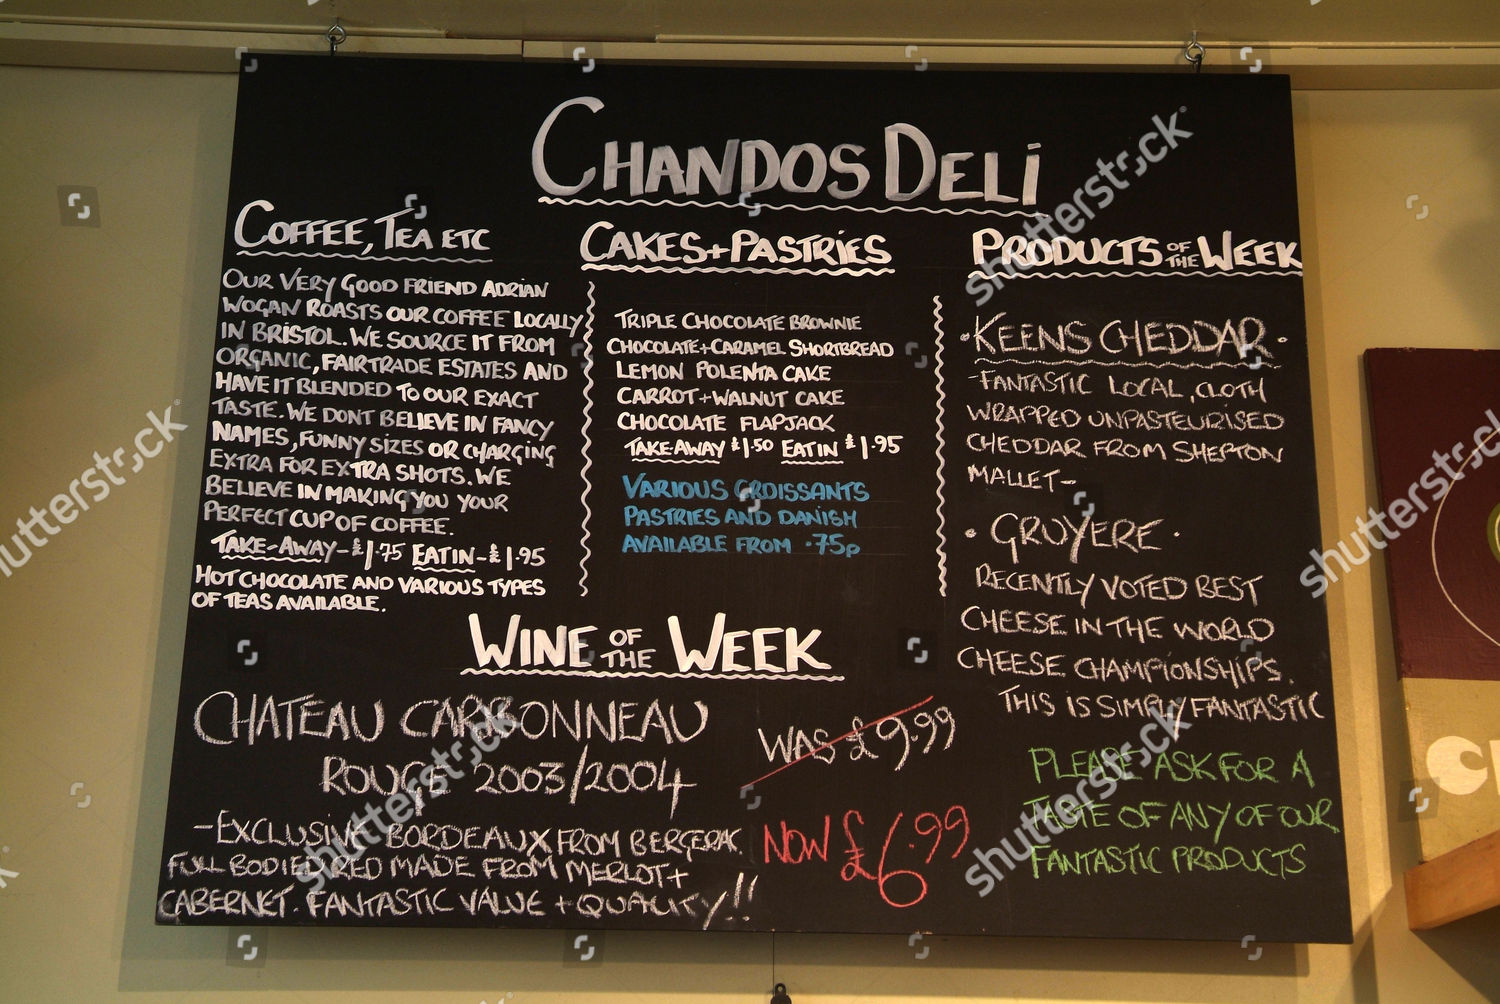 CHANDOS DELI
COFFEE, TEA ETC
OUR VERY GOOD FRIEND ADRIAN
WOGAN ROASTS OUR COFFEE LOCALLY
IN BRISTOL. WE SOURCE IT FROM
ORGANIC, FAIRTRADE ESTATES AND
HAVE IT BLENDED TO OUR EXACT
TASTE. WE DONT BELIEVE IN FANCY
NAMES, FUNNY SIZES OR CHARGING
EXTRA FOR EXTRA SHOTS. WE
BELIEVE IN MAKING YOU YOUR
PERFECT CUP OF COFFEE.
TAKE-AWAY-£1.75 EAT IN-£1.95
HOT CHOCOLATE AND VARIOUS TYPES
OF TEAS AVAILABLE.
CAKES+PASTRIES
TRIPLE CHOCOLATE BROWNIE
CHOCOLATE+CARAMEL SHORTBREAD
LEMON POLENTA CAKE
CARROT+WALNUT CAKE
CHOCOLATE FLAPJACK
TAKE-AWAY £1.50 EAT IN £1.95
VARIOUS CROISSANTS
PASTRIES AND DANISH
AVAILABLE FROM .75p
PRODUCTS OF THE WEEK
·KEENS CHEDDAR·
-FANTASTIC LOCAL, CLOTH
WRAPPED UNPASTEURISED
CHEDDAR FROM SHEPTON
MALLET-
·GRUYERE·
RECENTLY VOTED BEST
CHEESE IN THE WORLD
CHEESE CHAMPIONSHIPS.
THIS IS SIMPLY FANTASTIC
PLEASE ASK FOR A
TASTE OF ANY OF OUR
FANTASTIC PRODUCTS
WINE OF THE WEEK
CHATEAU CARBONNEAU
ROUGE 2003/2004
WAS £9.99
NOW £6.99
-EXCLUSIVE BORDEAUX FROM BERGERAC.
FULL BODIED RED MADE FROM MERLOT+
CABERNET. FANTASTIC VALUE +QUALITY!!
shutterstock
shutterstock
shutterstock
shutterstock
shutterstock
shutterstock
shutterstock